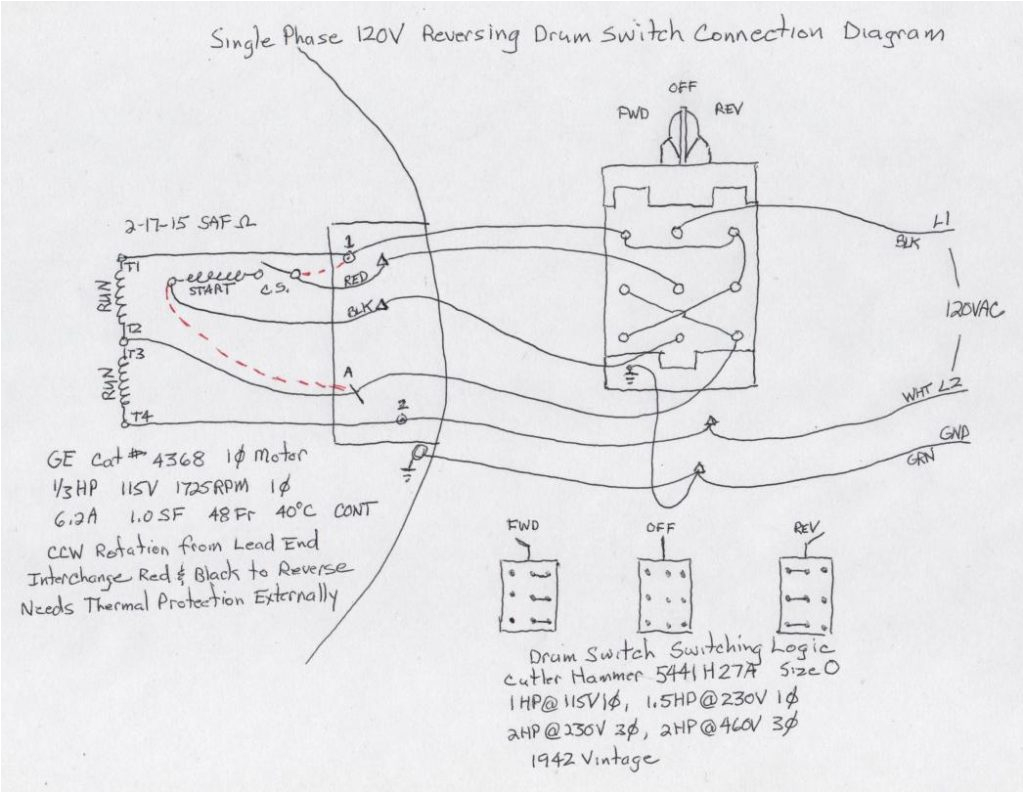 Single Phase 120V Reversing Drum Switch Connection Diagram
OFF
FWD REV
2-17-15 SAF Ω
L1
BLK
T1
1
RED
START
C.S.
RUN
BLK
120VAC
T2
T3
RUN
A
WHT L2
T4
2
GND
GRN
GE Cat # 4368 1ϕ Motor
1/3HP 115V 1725RPM 1ϕ
6.2A 1.0 SF 48Fr 40°C CONT
CCW Rotation from Lead End
Interchange Red & Black to Reverse
Needs Thermal Protection Externally
FWD OFF REV
Drum Switch Switching Logic
Cutler Hammer 5441H27A Size 0
1HP@115V1ϕ, 1.5HP@230V 1ϕ
2HP@230V 3ϕ, 2HP@460V 3ϕ
1942 Vintage